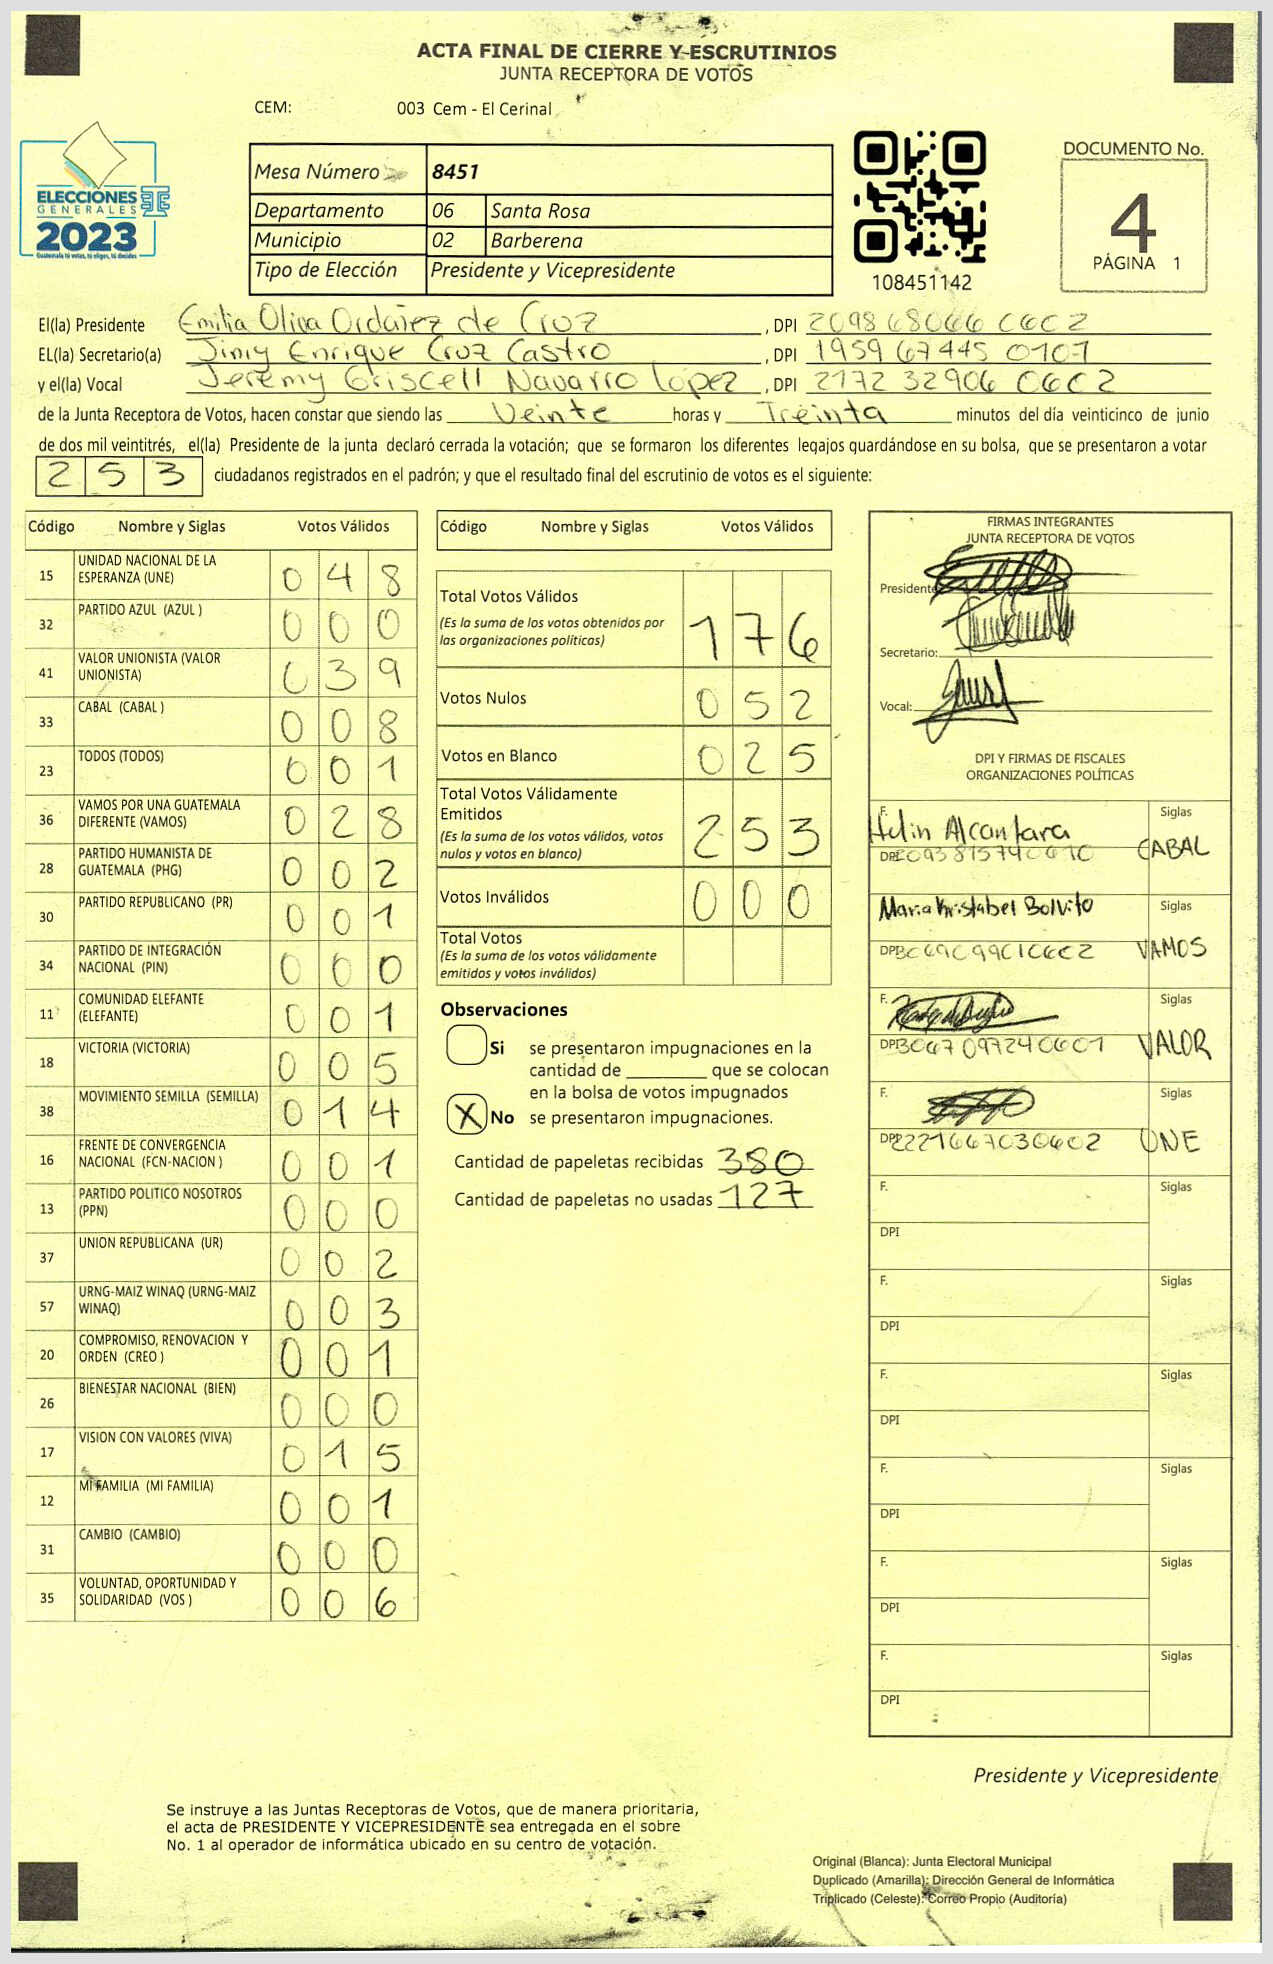 ACTA FINAL DE CIERRE Y ESCRUTINIOS
JUNTA RECEPTORA DE VOTOS
CEM: 003 Cem - El Cerinal
ELECCIONES
GENERALES
2023
Guatemala tú votas, tú eliges, tú decides
Mesa Número 8451
Departamento 06 Santa Rosa
Municipio 02 Barberena
Tipo de Elección Presidente y Vicepresidente
108451142
DOCUMENTO No.
4
PÁGINA 1
El(la) Presidente Emilia Oliva Ordoñez de Cruz, DPI 2098 68066 0602
EL(la) Secretario(a) Jimy Enrique Cruz Castro, DPI 1959 67445 0101
y el(la) Vocal Jeremy Griscell Navarro Lopez, DPI 2172 32906 0602
de la Junta Receptora de Votos, hacen constar que siendo las Veinte horas y Treinta minutos del día veinticinco de junio
de dos mil veintitrés, el(la) Presidente de la junta declaró cerrada la votación; que se formaron los diferentes legajos guardándose en su bolsa, que se presentaron a votar
253 ciudadanos registrados en el padrón; y que el resultado final del escrutinio de votos es el siguiente:
Código Nombre y Siglas Votos Válidos
15 UNIDAD NACIONAL DE LA ESPERANZA (UNE) 048
32 PARTIDO AZUL (AZUL ) 000
41 VALOR UNIONISTA (VALOR UNIONISTA) 039
33 CABAL (CABAL ) 008
23 TODOS (TODOS) 001
36 VAMOS POR UNA GUATEMALA DIFERENTE (VAMOS) 028
28 PARTIDO HUMANISTA DE GUATEMALA (PHG) 002
30 PARTIDO REPUBLICANO (PR) 001
34 PARTIDO DE INTEGRACIÓN NACIONAL (PIN) 000
11 COMUNIDAD ELEFANTE (ELEFANTE) 001
18 VICTORIA (VICTORIA) 005
38 MOVIMIENTO SEMILLA (SEMILLA) 014
16 FRENTE DE CONVERGENCIA NACIONAL (FCN-NACION ) 001
13 PARTIDO POLITICO NOSOTROS (PPN) 000
37 UNION REPUBLICANA (UR) 002
57 URNG-MAIZ WINAQ (URNG-MAIZ WINAQ) 003
20 COMPROMISO, RENOVACION Y ORDEN (CREO ) 001
26 BIENESTAR NACIONAL (BIEN) 000
17 VISION CON VALORES (VIVA) 015
12 MI FAMILIA (MI FAMILIA) 001
31 CAMBIO (CAMBIO) 000
35 VOLUNTAD, OPORTUNIDAD Y SOLIDARIDAD (VOS ) 006
Código Nombre y Siglas Votos Válidos
Total Votos Válidos
(Es la suma de los votos obtenidos por las organizaciones políticas) 176
Votos Nulos 052
Votos en Blanco 025
Total Votos Válidamente Emitidos
(Es la suma de los votos válidos, votos nulos y votos en blanco) 253
Votos Inválidos 000
Total Votos
(Es la suma de los votos válidamente emitidos y votos inválidos)
Observaciones
Si se presentaron impugnaciones en la
cantidad de ________ que se colocan
en la bolsa de votos impugnados
X No se presentaron impugnaciones.
Cantidad de papeletas recibidas 380
Cantidad de papeletas no usadas 127
FIRMAS INTEGRANTES
JUNTA RECEPTORA DE VOTOS
Presidente
Secretario:
Vocal:
DPI Y FIRMAS DE FISCALES
ORGANIZACIONES POLÍTICAS
F. Helin Alcantara Siglas
DPI CABAL
Maria Kristabel Bolvito Siglas
DPI VAMOS
F. Siglas
DPI 3067097240601 VALOR
F. Siglas
DPI 2221667030602 UNE
F. Siglas
DPI
F. Siglas
DPI
F. Siglas
DPI
F. Siglas
DPI
F. Siglas
DPI
F. Siglas
DPI
Presidente y Vicepresidente
Se instruye a las Juntas Receptoras de Votos, que de manera prioritaria,
el acta de PRESIDENTE Y VICEPRESIDENTE sea entregada en el sobre
No. 1 al operador de informática ubicado en su centro de votación.
Original (Blanca): Junta Electoral Municipal
Duplicado (Amarilla): Dirección General de Informática
Triplicado (Celeste): Correo Propio (Auditoría)